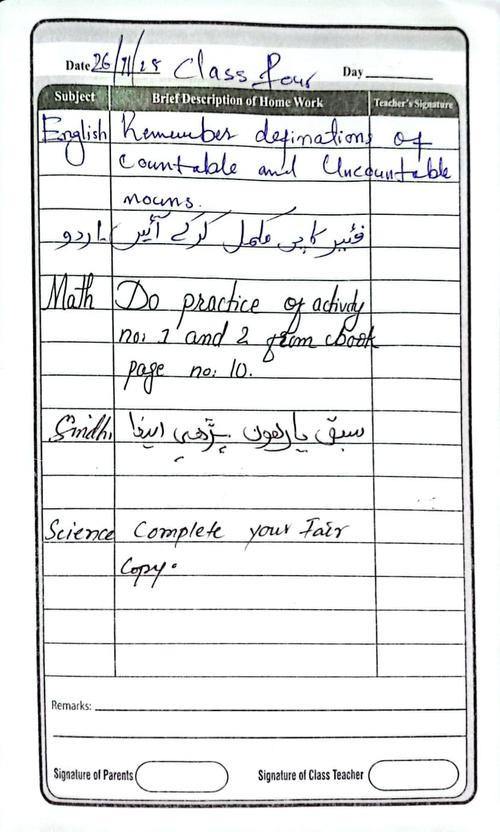 Date 26/11/25 Class Four Day
Subject Brief Description of Home Work Teacher's Signature
English Remember definations of
Countable and Uncountable
nouns.
اردو فئیر کاپی مکمل کرکے آئیں
Math Do practice of activity
no: 1 and 2 from cbook
page no: 10.
Sindhi سبق يارهون پڙهي ايندا
Science Complete your Fair
Copy.
Remarks:
Signature of Parents Signature of Class Teacher